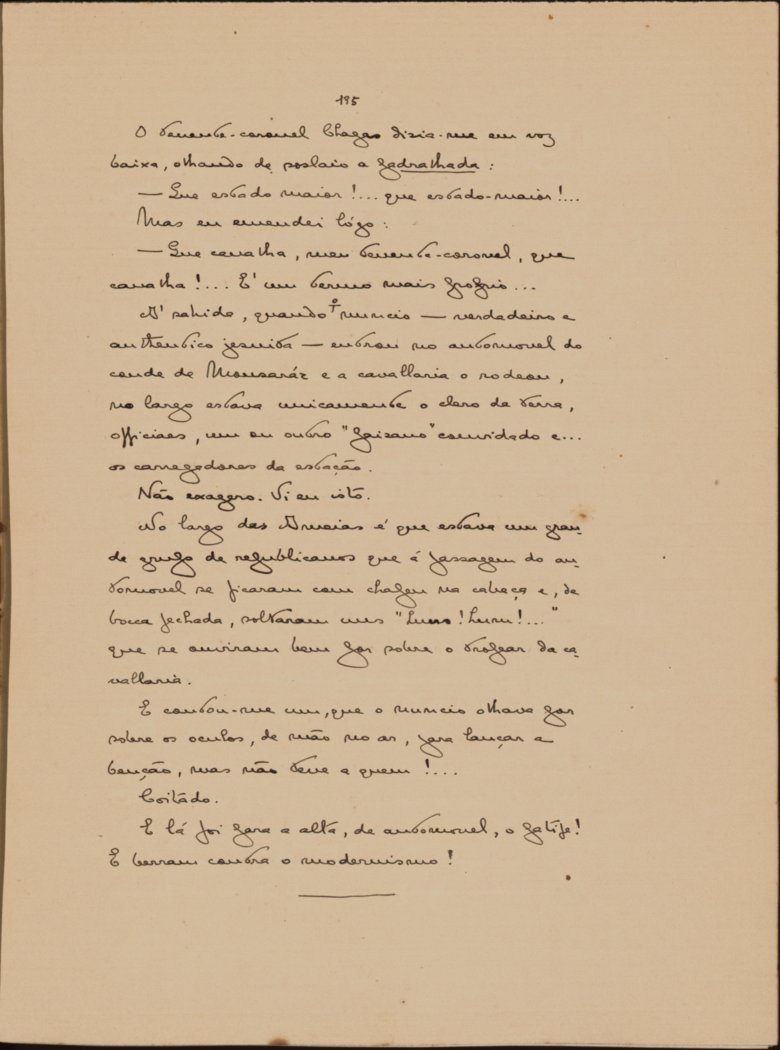 195
O tenente-coronel Chagas dizia-me em voz
baixa, olhando de soslaio a padralhada:
— Que estado maior!... que estado-maior!...
Mas eu emendei lógo:
— Que canalha, meu tenente-coronel, que
canalha!... E' um termo mais proprio...
A' sahida, quando o nuncio — verdadeiro e
authentico jesuita — entrou no automovel do
conde de Monsaráz e a cavallaria o rodeou,
no largo estava unicamente o clero da terra,
officiaes, um ou outro "paisano" convidado e...
os carregadores da estação.
Não exagero. Vi eu isto.
No largo das Ameias é que estava um gran-
de grupo de republicanos que á passagem do au-
tomovel se ficaram com chapeu na cabeça e, de
bocca fechada, soltaram uns "Huru! Huru!..."
que se ouviram bem por sobre o tropear da ca-
vallaria.
E contou-me um, que o nuncio olhava por
sobre os oculos, de mão no ar, para lançar a
benção, mas não teve a quem!...
Coitádo.
E lá foi para a alta, de automovel, o patife!
E berram contra o modernismo!